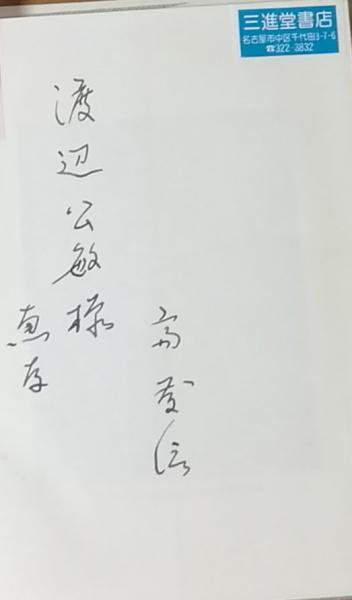 三進堂書店
名古屋市中区千代田3-7-6
☎322-3832
渡辺公敏様
恵存